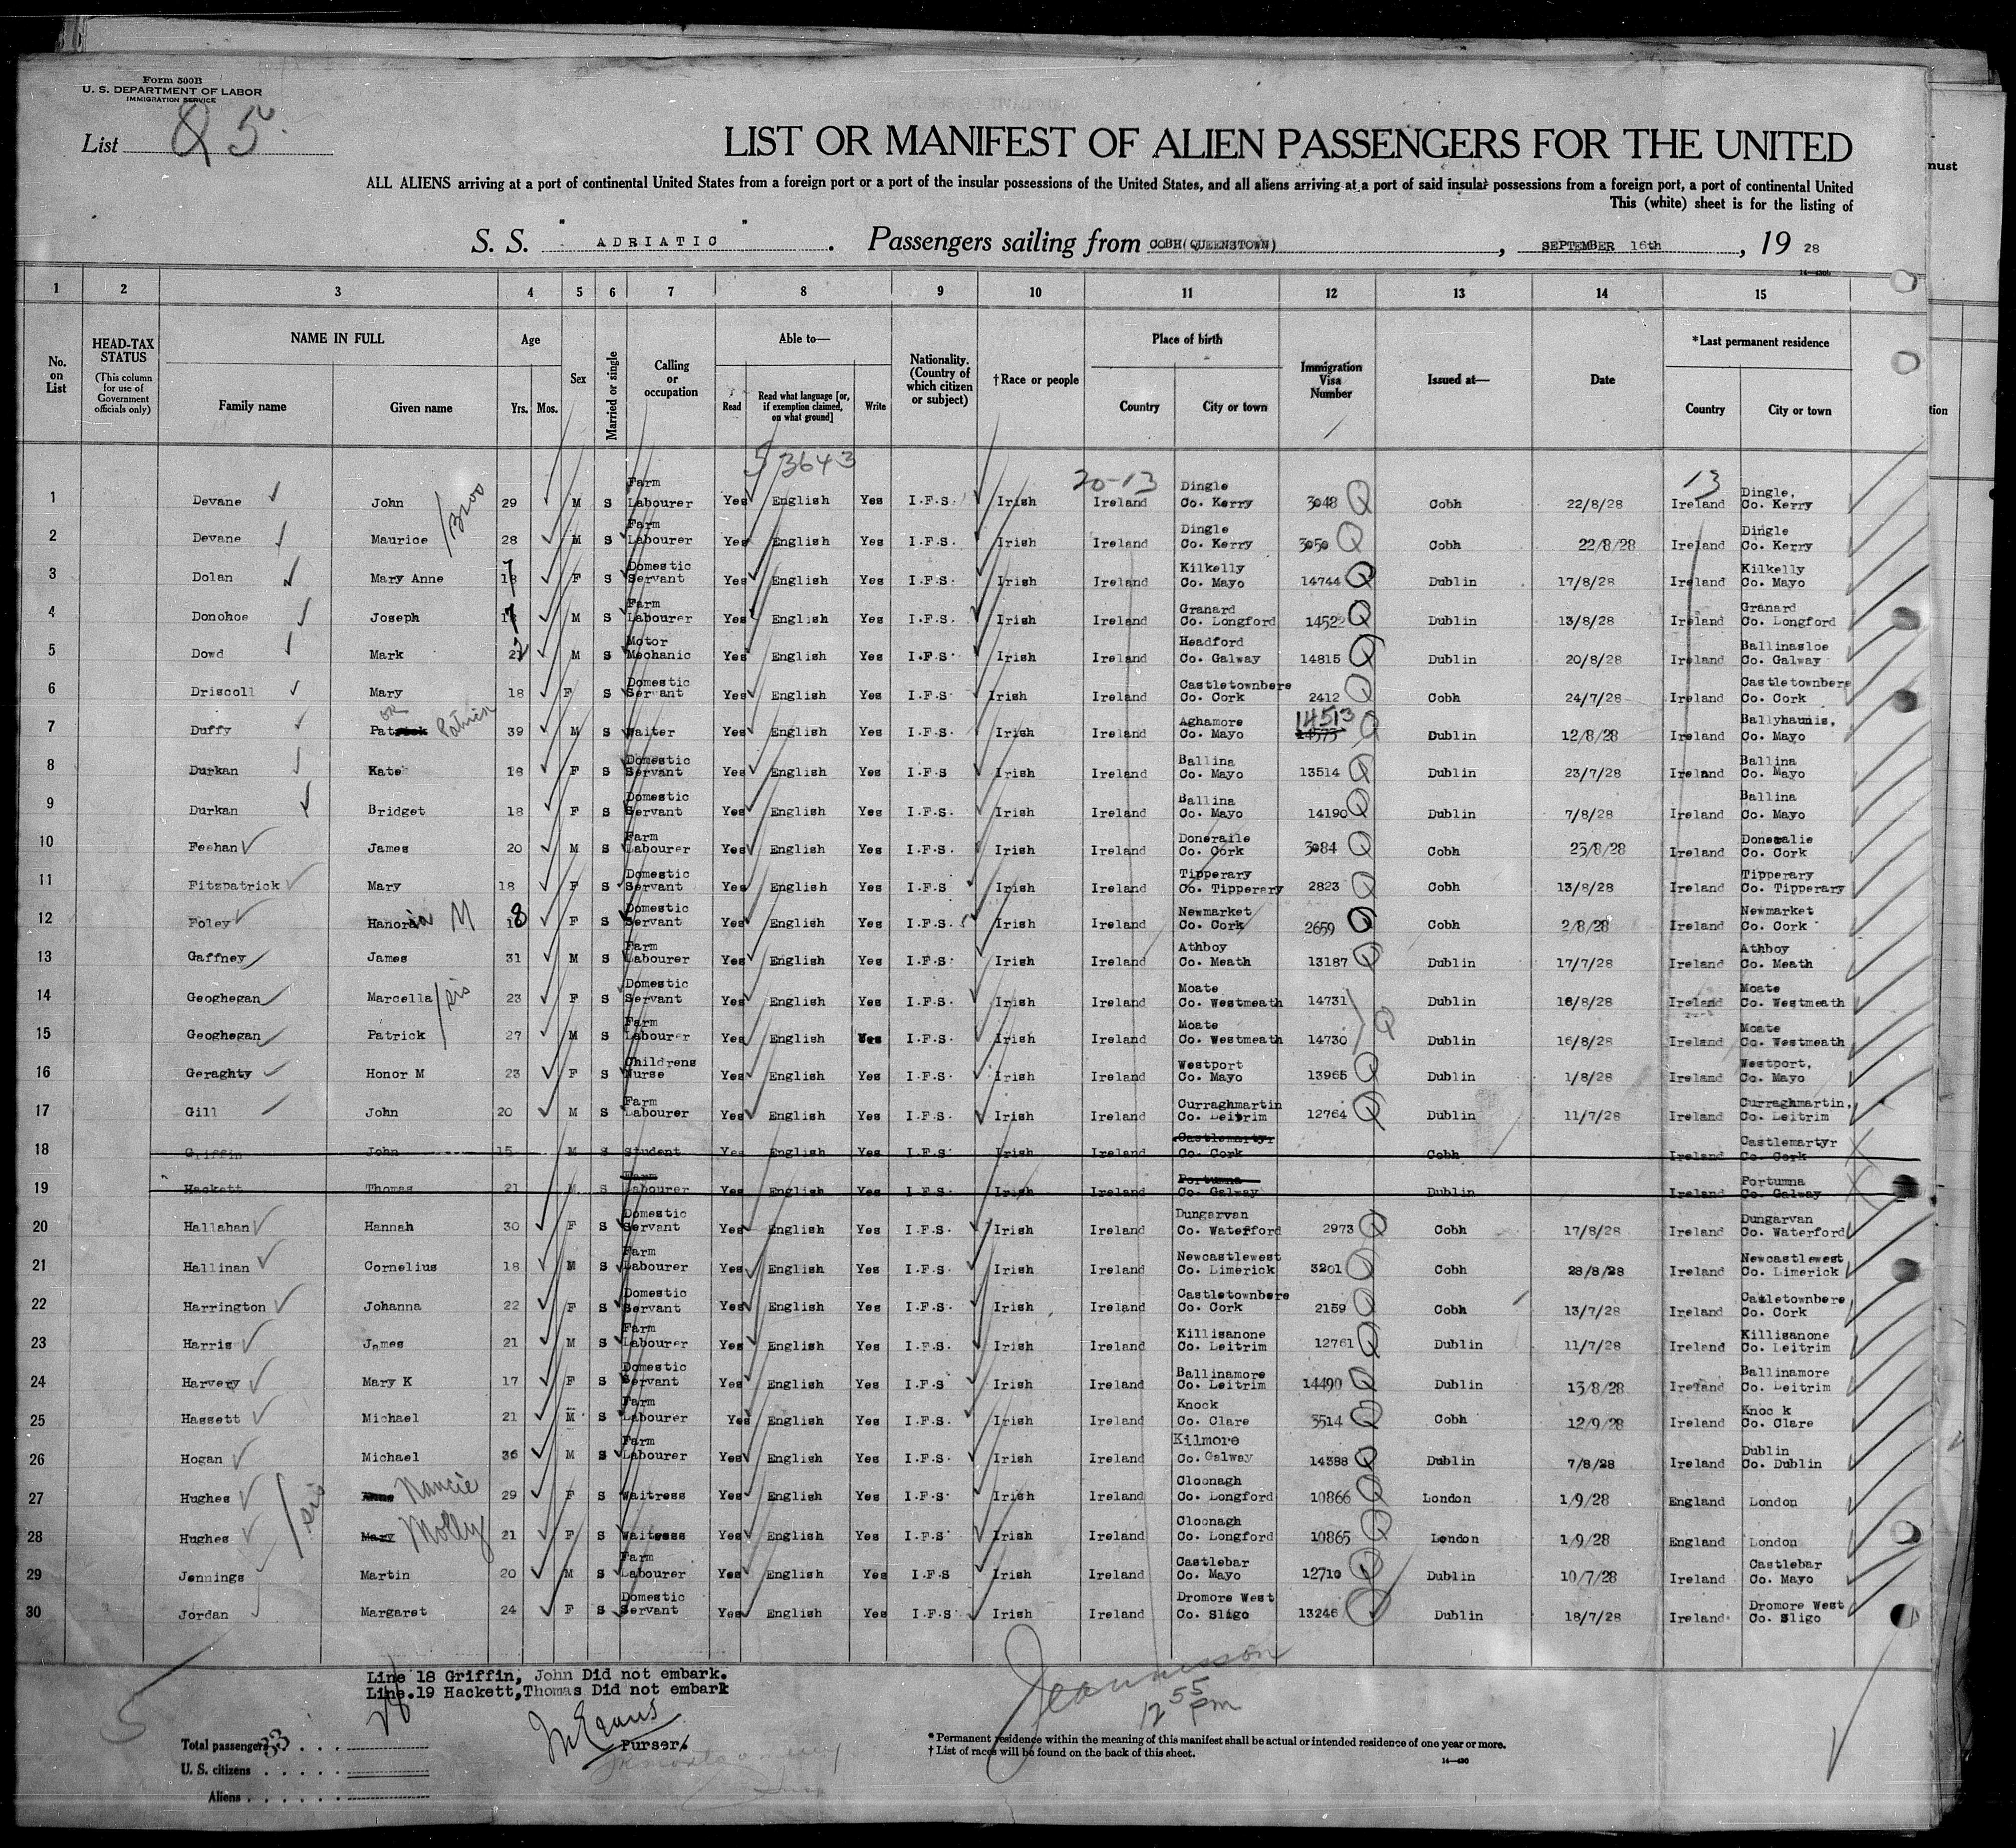 Form 500B
U. S. DEPARTMENT OF LABOR
IMMIGRATION SERVICE
List 85
LIST OR MANIFEST OF ALIEN PASSENGERS FOR THE UNITED
ALL ALIENS arriving at a port of continental United States from a foreign port or a port of the insular possessions of the United States, and all aliens arriving at a port of said insular possessions from a foreign port, a port of continental United
This (white) sheet is for the listing of
S. S. " ADRIATIC " . Passengers sailing from COBH(QUEENSTOWN) , SEPTEMBER 16th , 19 28
1 2 3 4 5 6 7 8 9 10 11 12 13 14 15
No. on List
HEAD-TAX STATUS
(This column for use of Government officials only)
NAME IN FULL
Family name Given name
Age
Yrs. Mos.
Sex
Married or single
Calling or occupation
Able to—
Read
Read what language [or, if exemption claimed, on what ground]
Write
Nationality. (Country of which citizen or subject)
†Race or people
Place of birth
Country City or town
Immigration Visa Number
Issued at—
Date
*Last permanent residence
Country City or town
53643
20-13
13
1 Devane John 29 M S Farm Labourer Yes English Yes I.F.S. Irish Ireland Dingle Co. Kerry 3048 Q Cobh 22/8/28 Ireland Dingle, Co. Kerry
2 Devane Maurice 28 M S Farm Labourer Yes English Yes I.F.S. Irish Ireland Dingle Co. Kerry 3050 Q Cobh 22/8/28 Ireland Dingle Co. Kerry
3 Dolan Mary Anne 17 F S Domestic Servant Yes English Yes I.F.S. Irish Ireland Kilkelly Co. Mayo 14744 Q Dublin 17/8/28 Ireland Kilkelly Co. Mayo
4 Donohoe Joseph 17 M S Farm Labourer Yes English Yes I.F.S. Irish Ireland Granard Co. Longford 14522 Q Dublin 13/8/28 Ireland Granard Co. Longford
5 Dowd Mark 22 M S Motor Mechanic Yes English Yes I.F.S. Irish Ireland Headford Co. Galway 14815 Q Dublin 20/8/28 Ireland Ballinasloe Co. Galway
6 Driscoll Mary 18 F S Domestic Servant Yes English Yes I.F.S. Irish Ireland Castletownbere Co. Cork 2412 Q Cobh 24/7/28 Ireland Castletownbere Co. Cork
7 Duffy Patrick OR Patrick 39 M S Waiter Yes English Yes I.F.S. Irish Ireland Aghamore Co. Mayo 14513 Q Dublin 12/8/28 Ireland Ballyhaunis, Co. Mayo
8 Durkan Kate 18 F S Domestic Servant Yes English Yes I.F.S Irish Ireland Ballina Co. Mayo 13514 Q Dublin 23/7/28 Ireland Ballina Co. Mayo
9 Durkan Bridget 18 F S Domestic Servant Yes English Yes I.F.S. Irish Ireland Ballina Co. Mayo 14190 Q Dublin 7/8/28 Ireland Ballina Co. Mayo
10 Feehan James 20 M S Farm Labourer Yes English Yes I.F.S. Irish Ireland Doneraile Co. Cork 3084 Q Cobh 23/8/28 Ireland Doneralie Co. Cork
11 Fitzpatrick Mary 18 F S Domestic Servant Yes English Yes I.F.S Irish Ireland Tipperary Co. Tipperary 2823 Q Cobh 13/8/28 Ireland Tipperary Co. Tipperary
12 Foley Hanoria M 18 F S Domestic Servant Yes English Yes I.F.S. Irish Ireland Newmarket Co. Cork 2659 Q Cobh 2/8/28 Ireland Newmarket Co. Cork
13 Gaffney James 31 M S Farm Labourer Yes English Yes I.F.S. Irish Ireland Athboy Co. Meath 13187 Q Dublin 17/7/28 Ireland Athboy Co. Meath
14 Geoghegan Marcella sis 23 F S Domestic Servant Yes English Yes I.F.S. Irish Ireland Moate Co. Westmeath 14731 Dublin 16/8/28 Ireland Moate Co. Westmeath
15 Geoghegan Patrick 27 M S Farm Labourer Yes English Yes I.F.S. Irish Ireland Moate Co. Westmeath 14730 Q Dublin 16/8/28 Ireland Moate Co. Westmeath
16 Geraghty Honor M 23 F S Childrens Nurse Yes English Yes I.F.S. Irish Ireland Westport Co. Mayo 13965 Q Dublin 1/8/28 Ireland Westport, Co. Mayo
17 Gill John 20 M S Farm Labourer Yes English Yes I.F.S. Irish Ireland Curraghmartin Co. Leitrim 12764 Q Dublin 11/7/28 Ireland Curraghmartin, Co. Leitrim
18 Griffin John 15 M S Student Yes English Yes I.F.S. Irish Ireland Castlemartyr Co. Cork Cobh Ireland Castlemartyr Co. Cork
19 Hackett Thomas 21 M S Farm Labourer Yes English Yes I.F.S. Irish Ireland Portumna Co. Galway Dublin Ireland Portumna Co. Galway
20 Hallahan Hannah 30 F S Domestic Servant Yes English Yes I.F.S. Irish Ireland Dungarvan Co. Waterford 2973 Q Cobh 17/8/28 Ireland Dungarvan Co. Waterford
21 Hallinan Cornelius 18 M S Farm Labourer Yes English Yes I.F.S. Irish Ireland Newcastlewest Co. Limerick 3201 Q Cobh 28/8/28 Ireland Newcastlewest Co. Limerick
22 Harrington Johanna 22 F S Domestic Servant Yes English Yes I.F.S. Irish Ireland Castletownbere Co. Cork 2159 Q Cobh 13/7/28 Ireland Castletownbere Co. Cork
23 Harris James 21 M S Farm Labourer Yes English Yes I.F.S. Irish Ireland Killisanone Co. Leitrim 12761 Q Dublin 11/7/28 Ireland Killisanone Co. Leitrim
24 Harvery Mary K 17 F S Domestic Servant Yes English Yes I.F.S Irish Ireland Ballinamore Co. Leitrim 14490 Q Dublin 13/8/28 Ireland Ballinamore Co. Leitrim
25 Hassett Michael 21 M S Farm Labourer Yes English Yes I.F.S. Irish Ireland Knock Co. Clare 3514 Q Cobh 12/9/28 Ireland Knock Co. Clare
26 Hogan Michael 36 M S Farm Labourer Yes English Yes I.F.S. Irish Ireland Kilmore Co. Galway 14388 Q Dublin 7/8/28 Ireland Dublin Co. Dublin
27 Hughes sis Anne Nancie 29 F S Waitress Yes English Yes I.F.S. Irish Ireland Cloonagh Co. Longford 10866 Q London 1/9/28 England London
28 Hughes Mary Molly 21 F S Waitress Yes English Yes I.F.S. Irish Ireland Cloonagh Co. Longford 10865 Q London 1/9/28 England London
29 Jennings Martin 20 M S Farm Labourer Yes English Yes I.F.S Irish Ireland Castlebar Co. Mayo 12710 Q Dublin 10/7/28 Ireland Castlebar Co. Mayo
30 Jordan Margaret 24 F S Domestic Servant Yes English Yes I.F.S. Irish Ireland Dromore West Co. Sligo 13246 Dublin 18/7/28 Ireland Dromore West Co. Sligo
Line 18 Griffin, John Did not embark.
Line.19 Hackett,Thomas Did not embark
Purser.
12 55 pm
Total passengers 33
U. S. citizens
Aliens
* Permanent residence within the meaning of this manifest shall be actual or intended residence of one year or more.
† List of races will be found on the back of this sheet.
14—430